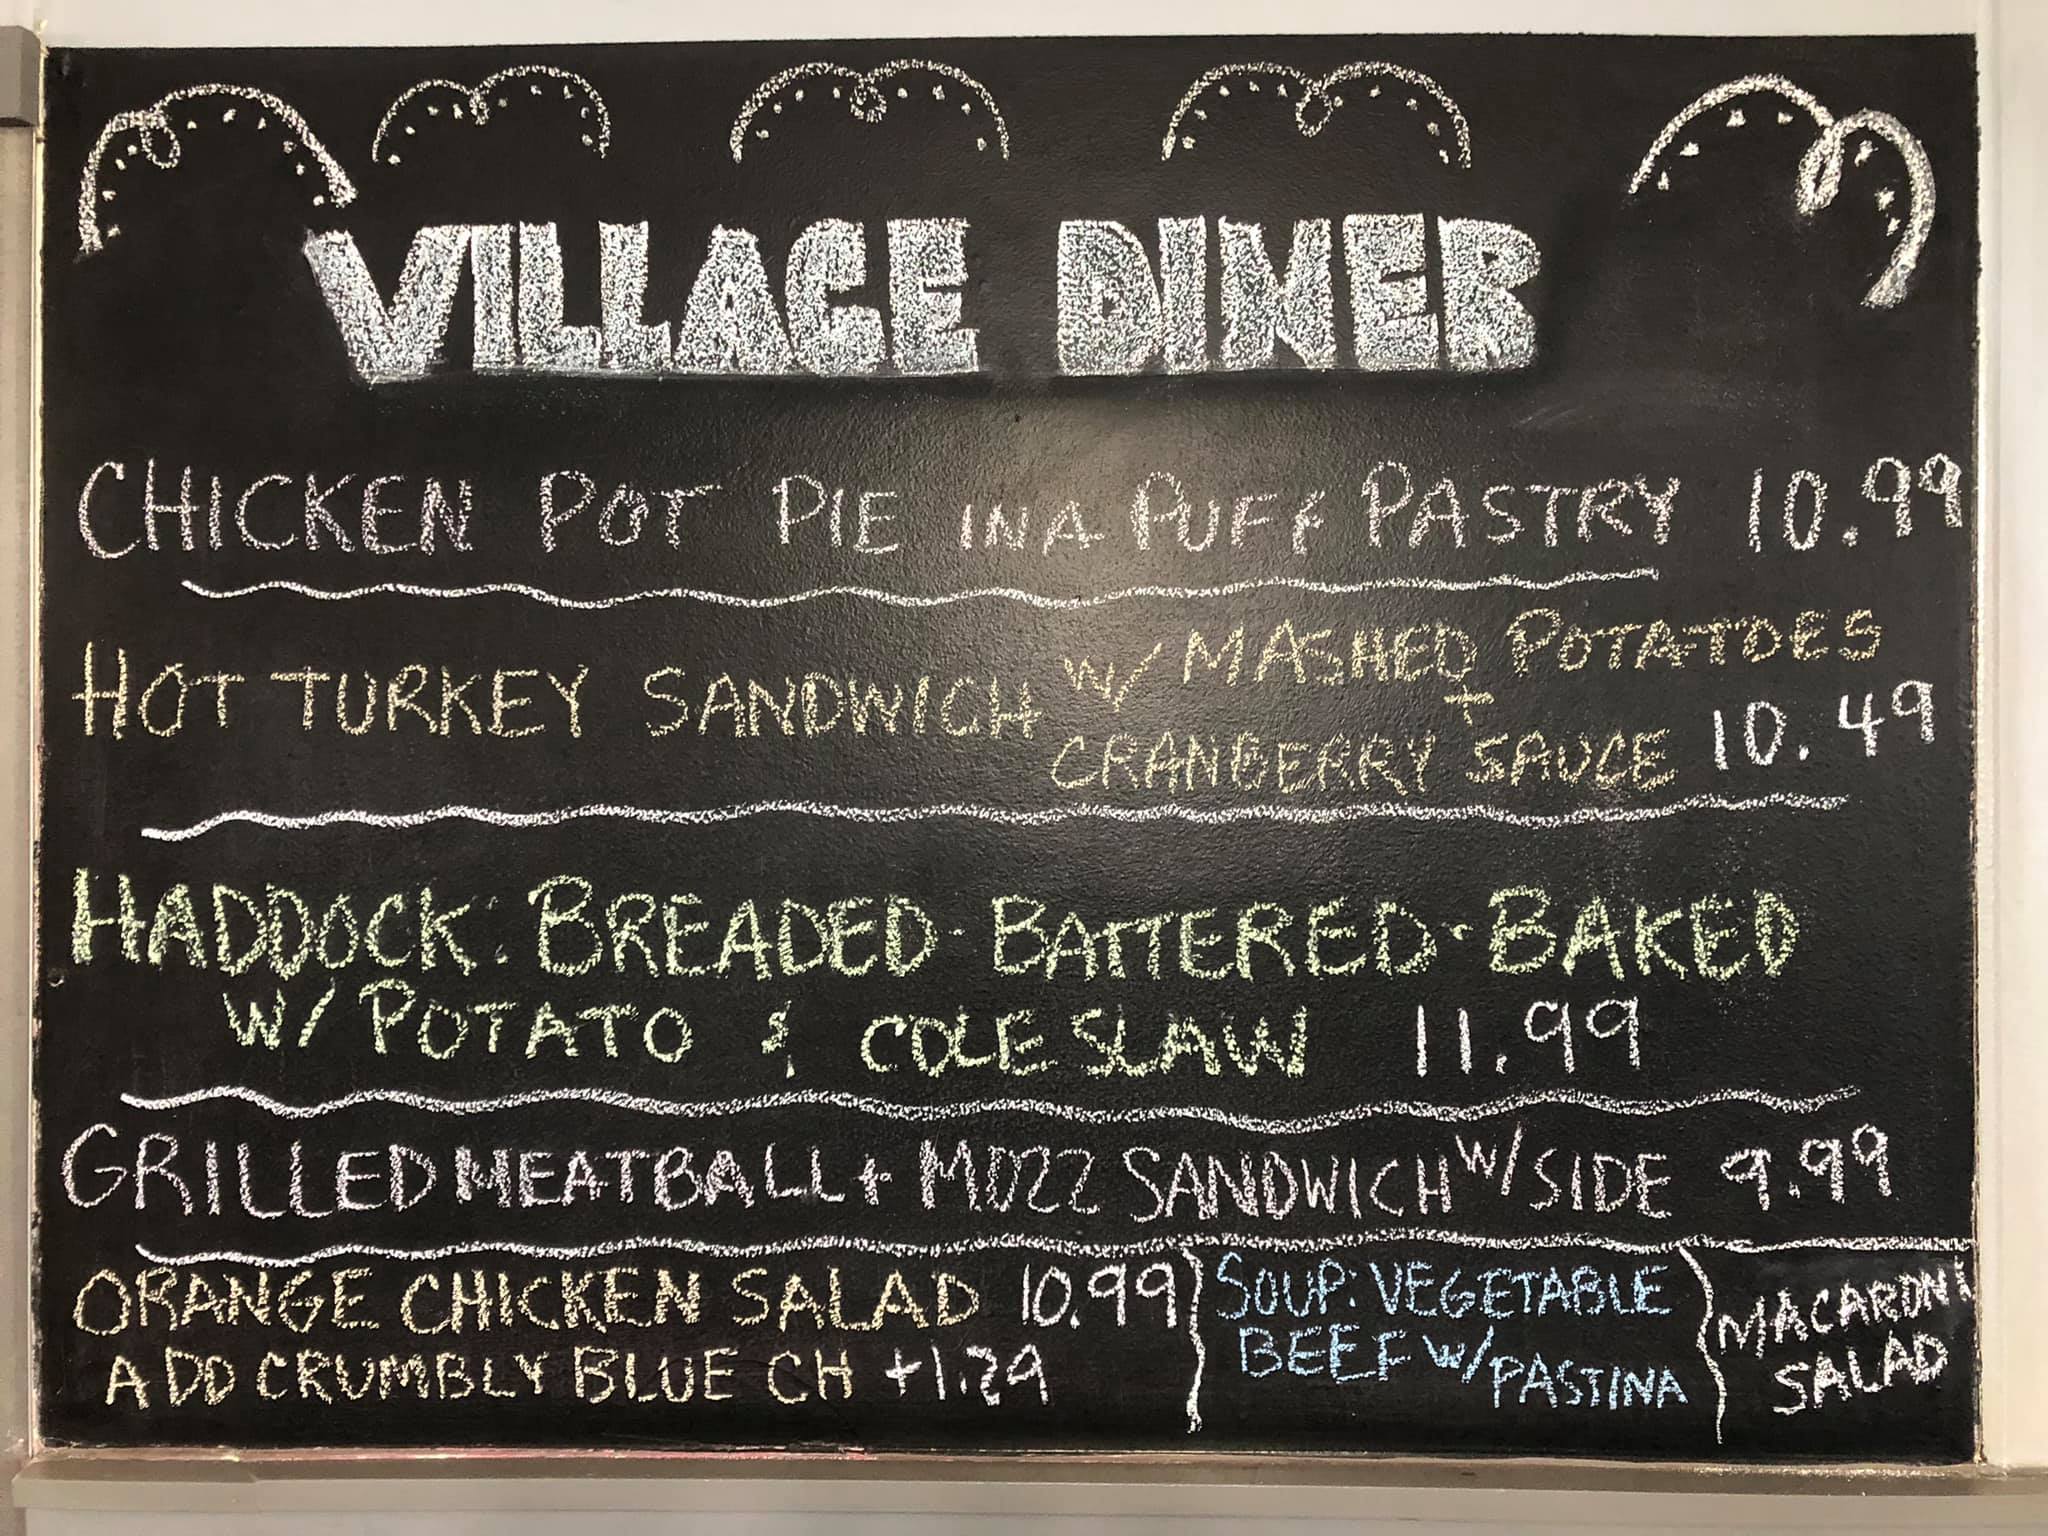 VILLAGE DINER
CHICKEN POT PIE IN A PUFF PASTRY 10.99
HOT TURKEY SANDWICH W/ MASHED POTATOES
+
CRANBERRY SAUCE 10.49
HADDOCK: BREADED · BATTERED · BAKED
W/ POTATO & COLESLAW 11.99
GRILLED MEATBALL + MOZZ SANDWICH W/ SIDE 9.99
ORANGE CHICKEN SALAD 10.99
ADD CRUMBLY BLUE CH +1.29
SOUP: VEGETABLE
BEEF W/ PASTINA
MACARONI
SALAD